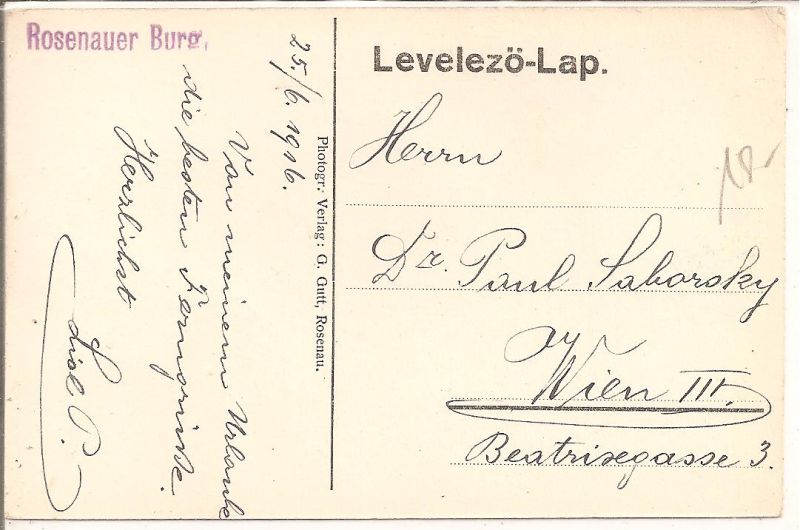 Rosenauer Burg.
Levelezö-Lap.
25./6. 1916.
Von meinem Urlaube
die besten Ferngrüsse.
Herzlichst
P.
Photogr: Verlag: G. Gutt, Rosenau.
Herrn
Dr. Paul Saborsky
Wien III.
Beatrixegasse 3.
18.-